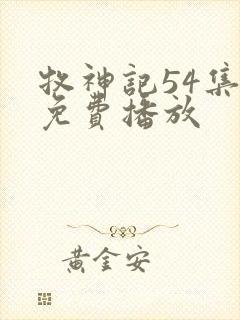 牧神記54集
免費播放
黃金安